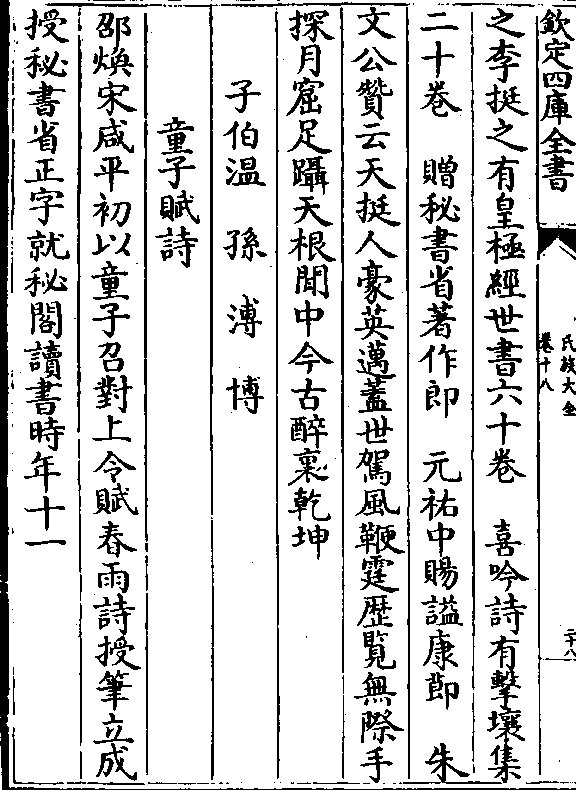 欽定四庫全書
氏族大全
卷十八
二十八
之李挺之有皇極經世書六十卷 喜吟詩有擊壤集
二十卷 贈秘書省著作郎 元祐中賜謚康節 朱
文公贊云天挺人豪英邁蓋世駕風鞭霆歴覧無際手
探月窟足躡天根閒中今古醉裏乾坤
子伯温 孫溥 博
童子賦詩
邵煥宋咸平初以童子召對上令賦春雨詩授筆立成
授秘書省正字就秘閣讀書時年十一